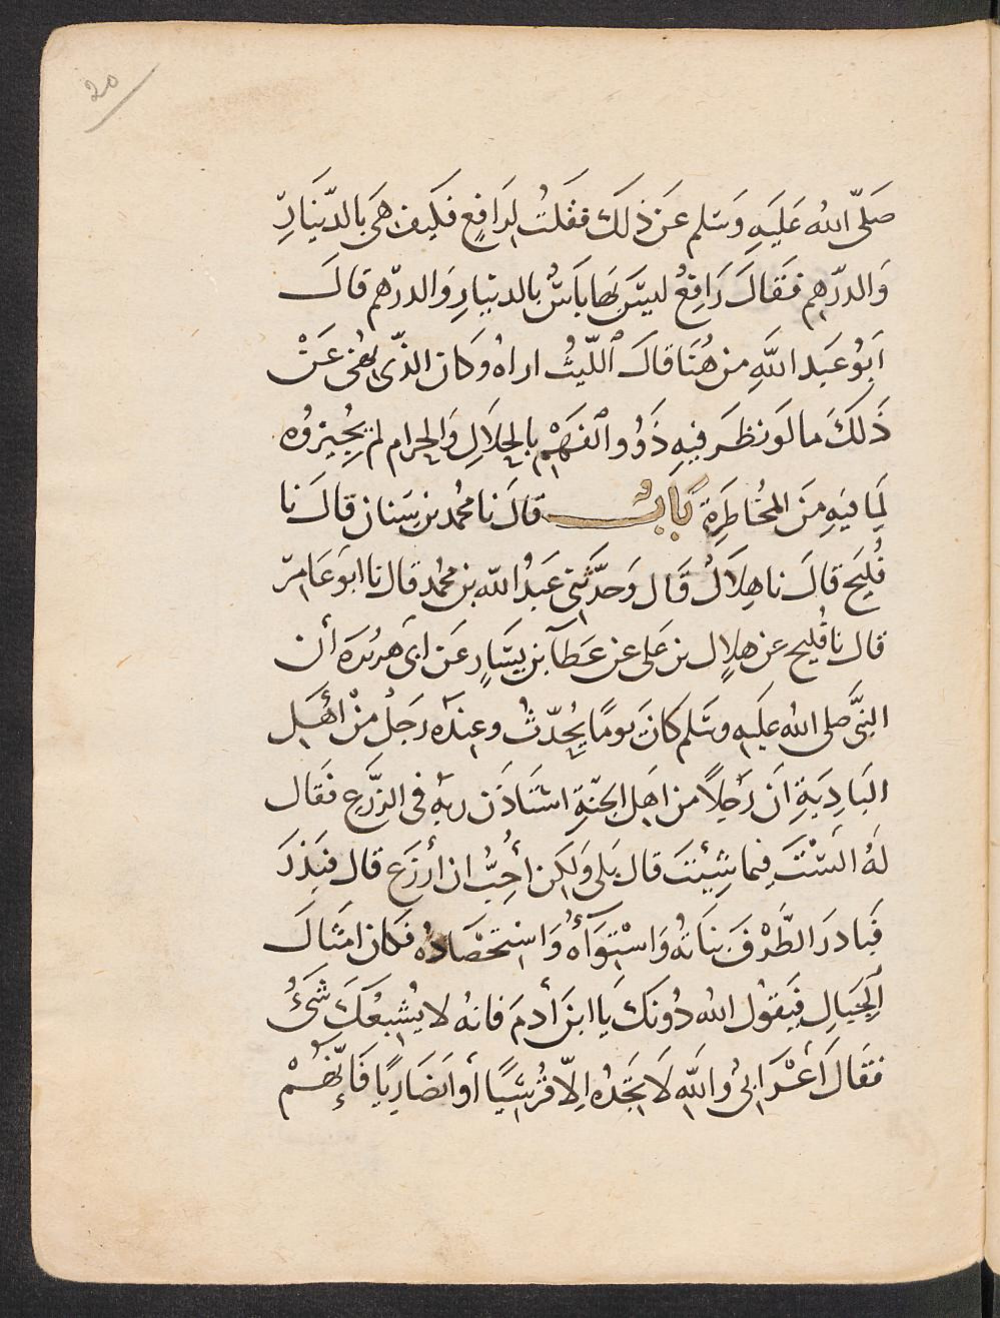 20
صَلَّى اللهُ عَلَيهِ وَسَلم عَن ذلَكَ فقَلتُ لِرَافِعٍ فكَيف هَى بالدّينَارِ
وَالدرّهِم فَقالَ رَافِعُ ليسَ بَها بَاسٌ بالدينارِ وَالدرّهم قالَ
ابُو عَبد اللَّهِ من هُنَا قالَ اللّيثُ اراهُ وكان الذّى نُهى عَنْ
ذَلكَ ما لَو نظرَ فيهِ ذَوُو الفَهْم بالحلاَلِ وَالحرام لم يُجيزوُه
لمَا فيَهِ مَنَ المخُاطَرَةِ بَابٌ قالَ نا محُمد بن سَنان قالَ نا
فُلَيح قالَ نا هِلاَلُ قَال وَحدَّثنى عَبدُ الله بن محُمد قال نا ابوَ عَامرّ
قال نا فُليح عن هِلال بن عَلى عن عَطآ بن يسَارٍ عَن ابى هرُيرَة أن
النبىَّ صلى الله عليَهِ وسَلم كانَ يومًا يُحدّثُ وعِندَه رَجَلُ مِنْ اهْلِ
البَادِيَةِ انَ رَجُلاً من اهَل الجنّةِ استَاذَن ربهُ فى الزّرَع فقَال
لهُ السَتْ فيما شِيْتَ قال بَلى وَلكِن أُحِبُّ ان أزرَع قال فبَذرَ
فَبادرَ الطَّرْفَ نباَتهُ وَاسْتِوَآؤُهُ وَاستحْصَادُه فكان امثَالَ
الجِبَالِ فَيقوُل اللهُ دُونكَ يَا ابنَ أدمَ فانهُ لا يُشبعُكَ شَىءٌ
فقَالَ أعْرَابىُ واللَّهِ لاَ تجَدُه اِلاّ قُرُشيًا أو انصَاريًا فَإنَّهُمْ